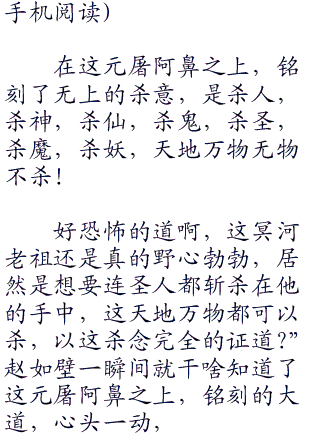 手机阅读)
在这元屠阿鼻之上，铭
刻了无上的杀意，是杀人，
杀神，杀仙，杀鬼，杀圣，
杀魔，杀妖，天地万物无物
不杀！
好恐怖的道啊，这冥河
老祖还是真的野心勃勃，居
然是想要连圣人都斩杀在他
的手中，这天地万物都可以
杀，以这杀念完全的证道?”
赵如壁一瞬间就干啥知道了
这元屠阿鼻之上，铭刻的大
道，心头一动，